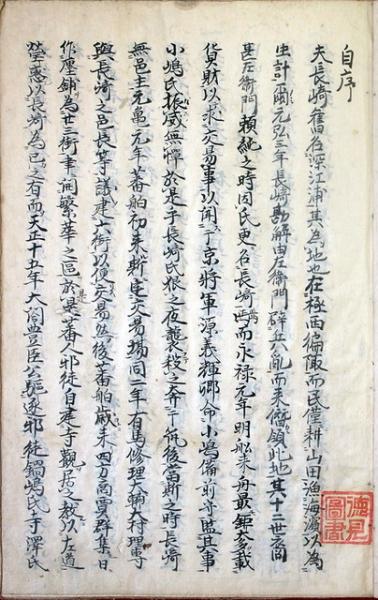 自序
夫長崎舊名深江浦其為地也在極西偏陬而民僅耕山田漁海濱以為
生計爾元弘三年長崎勘解由左衛門辟兵亂而来僭領此地其十一世
甚左衛門頼純之時因氏更名長崎焉而永禄元年明舩来舟最鉅多載
貨財以求交易事以聞于京將軍源義輝卿命小嶋備前守監其事
小嶋氏振威無憚於是乎長崎氏狠之夜襲殺之奔于後當斯之時長崎
無邑主元亀元年蕃舶初来斯定交易場同二年有馬修理大輔大村理專
與長崎之邑長等議建六街以便交易然後蕃舶歳来四方商賈群集日
作鋪為廿三街事開繁華之區於是蕃人邪徒自建寺觀居之教以左道
熒惑以長崎為已之有而天正十五年大閤豊臣公驅逐邪徒鍋嶋氏寺澤氏
德見圖書